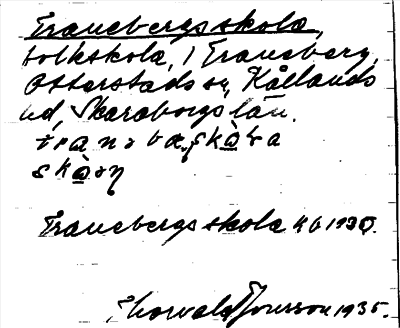 Tranebergsskola,
folkskola, i Traneberg,
Otterstads sn, Kållands
hd, Skaraborgs län.
Tranebergsskola Kb 1930.
Thorvald Jonsson 1935.